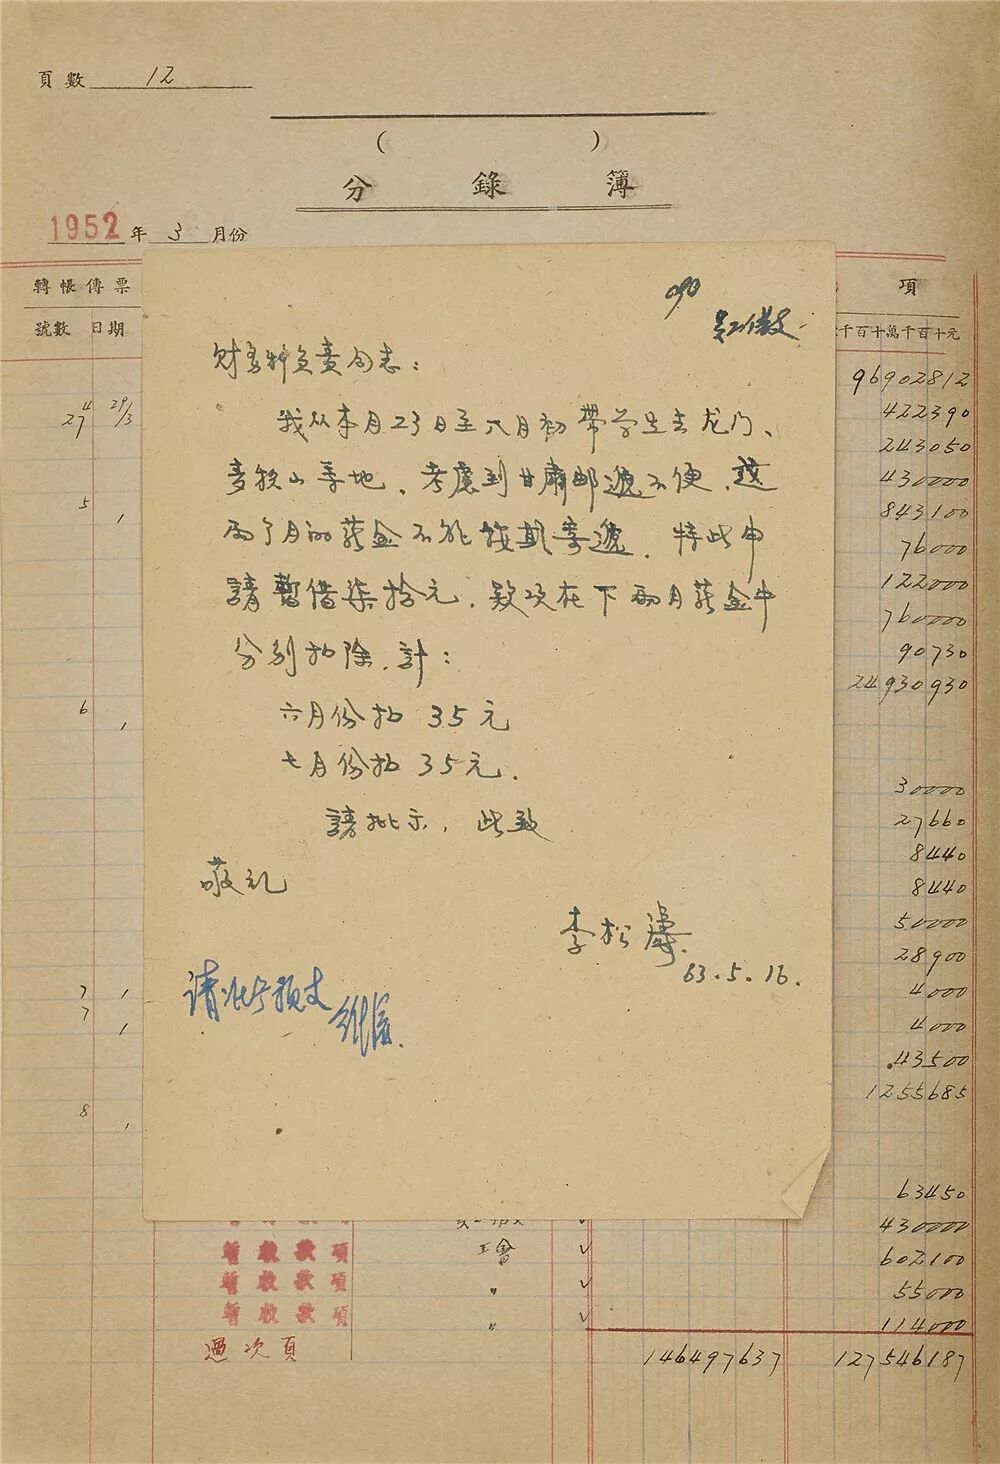 頁數 12
( )
分錄簿
1952年 3 月份
轉帳傳票
號數 日期
項
千百十萬千百十元
090
财务科负责同志：
我从本月23日至六月初带学生去龙门、
麦积山等地，考慮到甘肅邮遞不便，這
两个月的薪金不能按期寄遞，特此申
請暫借柒拾元，欵项在下兩月薪金中
分别扣除，計：
六月份扣 35元
七月份扣 35元.
請批示，此致
敬礼
李松濤.
63.5.16.
请准予预支
4 29/3
27
5 1
6 1
7 1
7 1
8 1
96902812
422390
243050
430000
843100
76000
122000
760000
90730
24930930
30000
27660
8440
8440
50000
28900
4000
4000
43500
1255685
63450
430000
602100
55000
114000
暫收款項 工會 √
暫收款項 〃 √
暫收款項 〃 √
過次頁 146497637 127546187